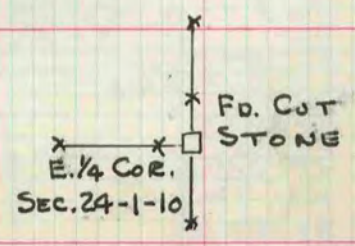 FD. CUT
STONE
E. 1/4 COR.
SEC. 24-1-10